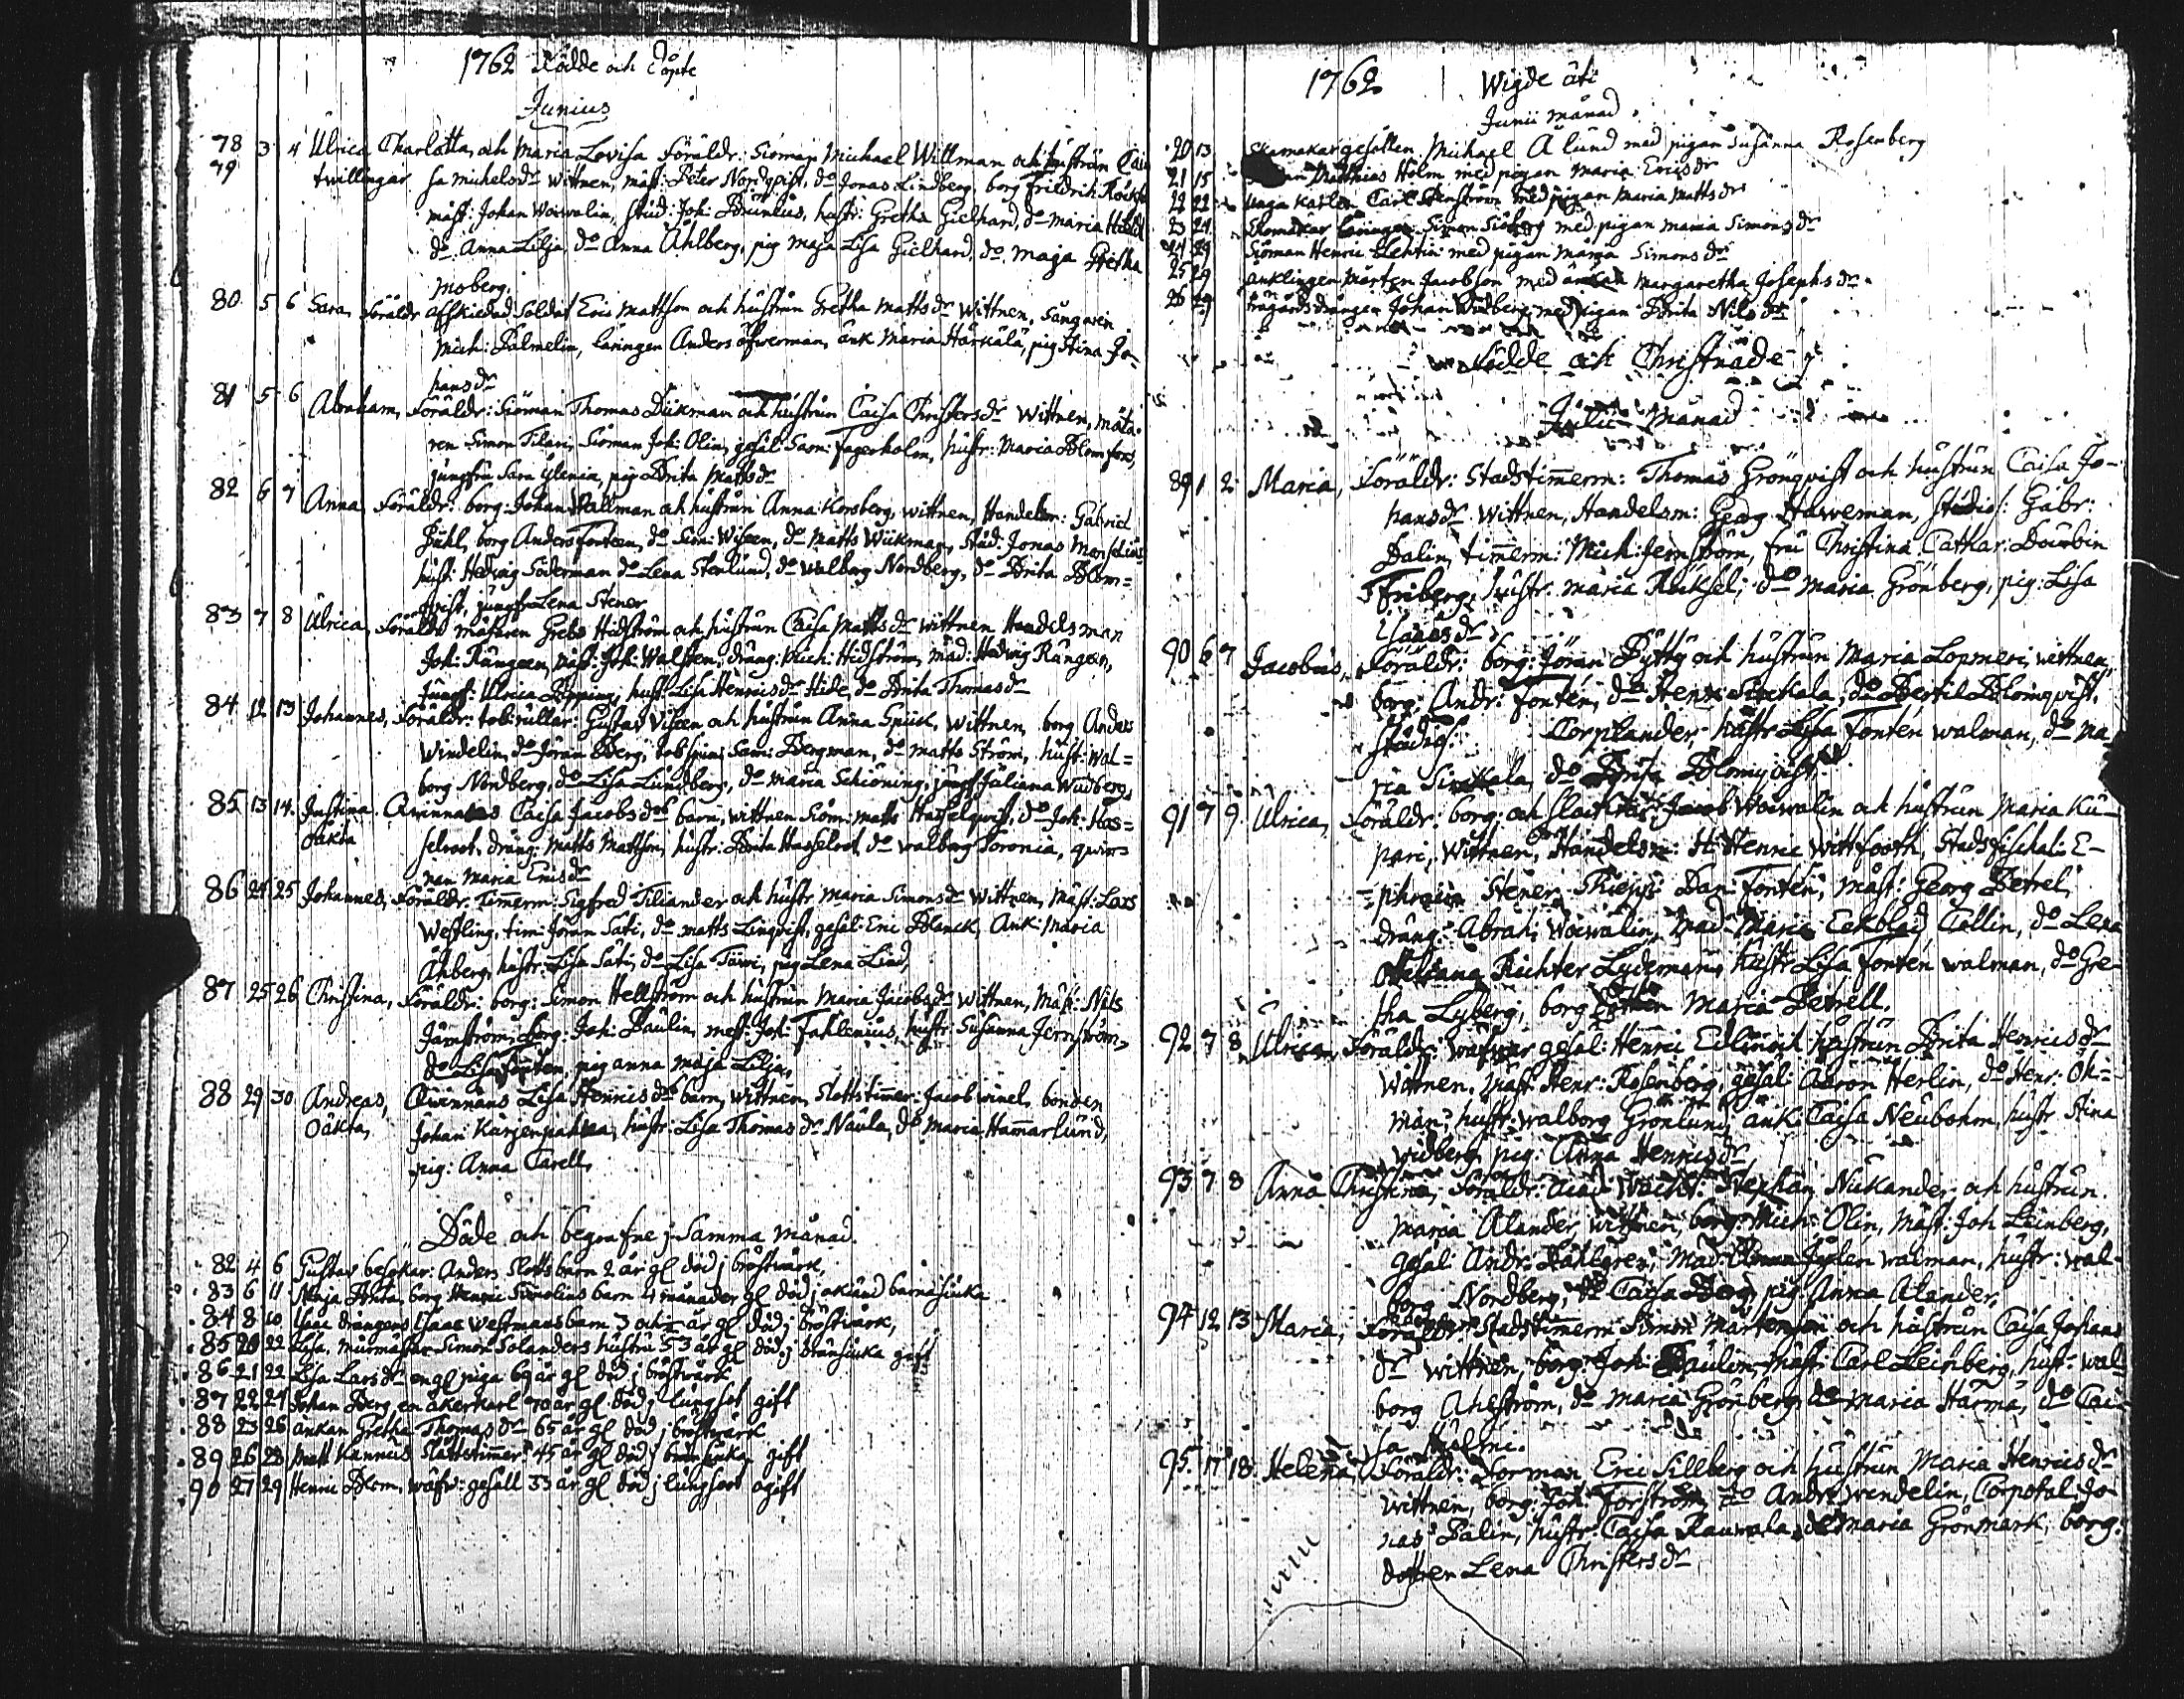 1762 Födde och Döpte
Junius
78 3 4 Ulrica Charlotta, och Maria Lovisa Föräldr: Siöman Michael Willman och hustrun Cai
79 twillingar sa Michelsdr wittnen, mäst: Peter Nordqvist, do Jonas Lindberg, borg Friedrich
mäst: Johan Woiwalin, stud: Joh: Brunlius, hustr: Gretha Gielhard, do Maria
do Anna Lilja, do Anna Ahlberg, pig Maja Lisa Gielhard, do Maja Gretha
Moberg.
80 5 6 Sara, Föräldr affskiedad Soldat Eric Mattsson och hustrun Gretha Mattsdr Wittnen, Sångaren
Mich: Palmelin, läringen Anders öfwerman, änk Maria Härkälä, pig Stina Jo-
hansdr
81 5 6 Abraham, Föräldr: Siöman Thomas Dükman och hustrun Caisa Christersdr Wittnen, mäta-
ren Simon Tilari, Siöman Joh: Olin, gesäl Sam: Fagerholm, hustr: Maria Blomfors,
jungfru Sara Ylenia, pig Brita Mattsdr
82 6 7 Anna Föräldr: borg: Johan Wallman och hustrun Anna Korsberg, wittnen, Handelsm: Gabriel
Bühl, borg Anders Fonteen, do Sim: Wiseen, do Matts Wickman, Stud: Jonas
hust: Hedvig Söderman do Lena Stenlund, do Walborg Nordberg, do Brita Blom=
qvist, jungfr Lena Stener
83 7 8 Ulrica, Föräldr mästaren Grels Hidström och hustrun Caisa Mattsdr Wittnen Handelsman
Joh: Rångeen, mäst: Joh: Walsten, dräng: Mich: Hidström, mad: Hedvig Rångeen,
Jungf: Ulrica Bipping, hust: Lisa Henricsdr Hide, do Brita Thomasdr
84 12 13 Johannes, Föräldr: tob: rullar: Gustav Viseen och hustrun Anna Spük, Wittnen, borg Anders
Windelin, do Jöran Berg, tobspin: Sam: Bergman, do Matts Ström, hust: Wal=
borg Nordberg, do Lisa Lundberg, do Maria Schiöning, jungf Juliana Widberg,
85 13 14 Justina Qwinnans Caisa Jacobsdrs barn, wittnen Siöm: Matts Hasselqvist, do Joh: Has=
Oäkta selroot, dräng: Matts Mattsson, hustr: Brita Hasselroot, do Walborg Soronia, qwin=
nan Maria Ericsdr
86 24 25 Johannes, Föräldr: Timmerm: Sigfred Tiliander och hustr: Maria Simonsdr Wittnen, mäst: Lars
Westling, tim: Jöran Sati, do Matts Linqvist, gesäl: Eric Blanck, Änk: Maria
Åhberg, hustr: Lisa Sati, do Lisa Tüwi, pig Lena Lind,
87 25 26 Christina, Föräldr: borg: Simon Hellström och hustrun Maria Jacobsdr Wittnen, Mäst: Nils
Järnström, borg: Joh: Paulin, mest: Joh: Fahlenius, hustr: Susanna Jernström,
do Lisa Fonten, pig Anna Maja Lilja,
88 29 30 Andreas, Qwinnans Lisa Henricsdrs barn, wittnen, Slottstimmer: Jacob Winel, bonden
Oäkta, Johan Karjenpahka, hustr: Lisa Thomasdr Naula, do Maria Hamarlund,
pig: Anna Carell,
Döde och begrafne j Samma månad
82 4 6 Gustav besökar: Anders Slotts barn 2 år gl död j bröstwärk,
83 6 11 Maja Brita, borg Henric Simolius barn 4 månader gl död j okiänd barnasiuka
84 8 10 Isaac drängens Isaac Westmans barn 3 och ½ år gl död j bröstwärk,
85 20 22 Lisa, murmästar Simon Solanders hustru 53 år gl död j brännsiuka gift
86 21 22 Lisa Larsdr en gl piga 69 år gl död j bröstwärk
87 22 27 Johan Berg, en åkerkarl 70 år gl död j lungsot gift
88 23 26 änkan Gretha Thomasdr 65 år gl död j bröstwärk
89 26 28 Matt Kannus Slåttstimmer: 45 år gl död j brännsiuka, gift
90 27 29 Henric Blom, wäfv: gesäll 33 år gl död j lungsoot ogift
1762 Wigde äti
Junii månad
20 13 Skomakargesällen Michael Ålund med pigan Susanna Rosenberg
21 15 Matthias Holm med pigan Maria Ericsdr
22 22 unga Karlen Carl Stenström med pigan Maria Mattsdr
23 24 Skomakar läringen Simon Siöberg med pigan Maria Simonsdr
24 29 Siöman Henric Lehtin med pigan Maria Simonsdr
25 29 änklingen Mårten Jacobson med änkan Margaretha Josephsdr
26 29 trägårdsdrängen Johan Widberg med pigan Brita Nilsdr
Födde och Christnade j
Julii Månad
89 1 2 Maria, Föräldr: Stadstimmerm: Thomas Grönqvist och hustrun Caisa Jo-
hansdr Wittnen, Handelsm: Georg Haweman, Studios: Gabr:
Dalin, timmerm: Mich: Jernström, fru Christina Cathar: Dourbin
Friberg, hustr. Maria Ruksel, do Maria Grönberg, pig: Lisa
Isaacsdr
90 6 7 Jacobus, Föräldr: borg: Jöran Pytty och hustrun Maria Lopmeri, wittnen,
borg: Andr: Fontén, do Henr: Sirckala, do Bertil Blomqvist,
Studios: Corplander, hustr Lisa Fontén Walman, do Ma
ria Sirckala, do Brita Blomqvist
91 7 9 Ulrica, Föräldr: borg: och slachtar: Jacob Woiwalin och hustrun Maria Ku-
pari, Wittnen, Handelsm: H: Henric Wittfooth, Stadsfischal: E-
phraim Stener, Dan: Fontén, mäst: Georg Petrel,
dräng: Abrah: Woiwalin, Mad: Maria Eckblad Collin, do Lena
Richter Lydeman, hustr Lisa Fontén Walman, do Gre-
tha Lyberg, borg dottren Maria Petrell.
92 7 8 Ulrica, Föräldr: Wäfvar gesäl: Henric Edlin och hustrun Brita Henricsdr
Wittnen, Mäst: Henr: Rosenberg, gesäl: Aaron Herlin, do Henr: Öh=
man, hustr: Walborg Grönlund, änk: Caisa Neubohm, hustr Stina
Widberg, pig: Anna Henricsdr,
93 7 8 Anna Christina, Föräldr: acad: Wacht: Stephan Nukander och hustrun
Maria Alander, wittnen, borg: Mich: Olin, Mäst: Joh Leinberg,
gesäl Andr: Dahlgren, Mad: Walman, hustr: Wal-
borg Nordberg, do Caisa Berg, pig Anna Alander,
94 12 13 Maria, Föräldr Stadstimmerm Simon Mårtensson och hustrun Caisa Johans
dr wittnen, borg: Joh: Paulin, Mäst: Carl Leinberg, hust: Wal-
borg Ahlström, do Maria Grönberg, do Maria Härmä, do Cai-
sa
95 17 18 Helena, Föräldr: Forman Eric Sillberg och hustrun Maria Henricsdr
Wittnen, borg: Joh: Forström, do Andr: Wendelin, Corporal: Jo-
nas Palin, hustr: Caisa Rauwala, do Maria Grönmark, borg:
dottren Lena Christersdr